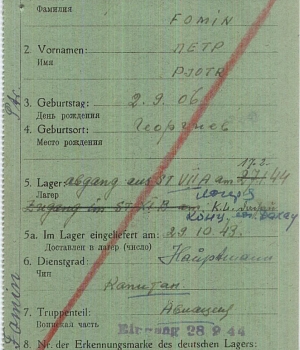 Фамилия
FOMIN
2. Vornamen: ПЕТР
Имя
PJOTR
3. Geburtstag: 2. 9. 06.
День рождения
4. Geburtsort: Георгиев
Место рождения
17.2.
5. Lager: abgang aus ST VII A am 44
Лагерь
5a. Im Lager eingeliefert am: 29.10.43.
Доставлен в лагерь (число)
6. Dienstgrad: Hauptmann
Чин
Капитан
7. Truppenteil: Авиация
Воинская часть
Eingang 28 9 44
8. Nr. der Erkennungsmarke des deutschen Lagers:
Fomin